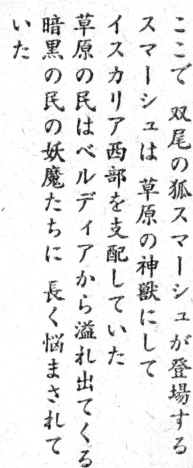 ここで 双尾の狐スマーシュが登場する
スマーシュは 草原の神獣にして
イスカリア西部を支配していた
草原の民はベルディアから溢れ出てくる
暗黒の民の妖魔たちに 長く悩まされて
いた